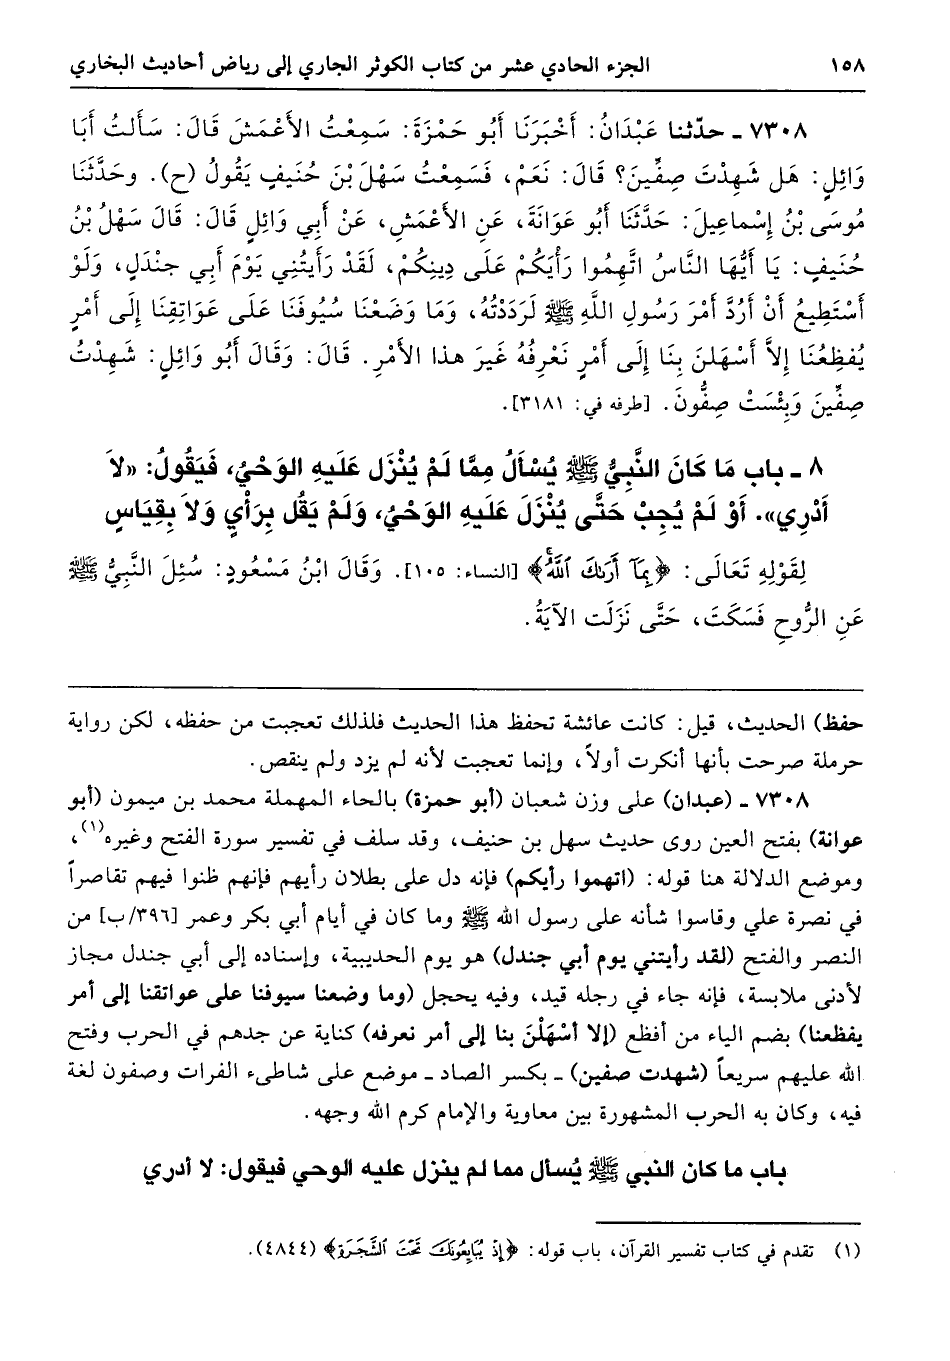 ١٥٨ الجزء الحادي عشر من كتاب الكوثر الجاري إلى رياض أحاديث البخاري
٧٣٠٨ ـ حدّثنا عَبْدَانُ: أَخْبَرَنَا أَبُو حَمْزَةَ: سَمِعْتُ الأَعْمَشَ قَالَ: سَأَلتُ أَبَا
وَائِلٍ: هَل شَهِدْتَ صِفِّينَ؟ قَالَ: نَعَمْ، فَسَمِعْتُ سَهْلَ بْنَ حُنَيفٍ يَقُولُ (ح). وحَدَّثَنَا
مُوسَى بْنُ إِسْماعِيلَ: حَدَّثَنَا أَبُو عَوَانَةَ، عَنِ الأَعْمَشِ، عَنْ أَبِي وَائِلٍ قَالَ: قَالَ سَهْلُ بْنُ
حُنَيفٍ: يَا أَيُّهَا النَّاسُ اتَّهِمُوا رَأْيَكُمْ عَلَى دِينِكُمْ، لَقَدْ رَأَيتُنِي يَوْمَ أَبِي جنْدَلٍ، وَلَوْ
أَسْتَطِيعُ أَنْ أَرُدَّ أَمْرَ رَسُولِ اللَّهِ ﷺ لَرَدَدْتُهُ، وَمَا وَضَعْنَا سُيُوفَنَا عَلَى عَوَاتِقِنَا إِلَى أَمْرٍ
يُفظِعُنَا إِلاَّ أَسْهَلنَ بِنَا إِلَى أَمْرٍ نَعْرِفُهُ غَيرَ هذا الأَمْرِ. قَالَ: وَقَالَ أَبُو وَائِلٍ: شَهِدْتُ
صِفِّينَ وَبِئْسَتْ صِفُّونَ. [طرفه في: ٣١٨١].
٨ ـ باب مَا كَانَ النَّبِيُّ ﷺ يُسْأَلُ مِمَّا لَمْ يُنْزَل عَلَيهِ الوَحْيُ، فَيَقُولُ: «لاَ
أَدْرِي». أَوْ لَمْ يُجِبْ حَتَّى يُنْزَلَ عَلَيهِ الوَحْيُ، وَلَمْ يَقُل بِرَأْيٍ وَلاَ بِقِيَاسٍ
لِقَوْلِهِ تَعَالَى: ﴿بِمَآ أَرَىٰكَ ٱللَّهُ﴾ [النساء: ١٠٥]. وَقَالَ ابْنُ مَسْعُودٍ: سُئِلَ النَّبِيُّ ﷺ
عَنِ الرُّوحِ فَسَكَتَ، حَتَّى نَزَلَت الآيَةُ.
حفظ) الحديث، قيل: كانت عائشة تحفظ هذا الحديث فلذلك تعجبت من حفظه، لكن رواية
حرملة صرحت بأنها أنكرت أولاً، وإنما تعجبت لأنه لم يزد ولم ينقص.
٧٣٠٨ ـ (عبدان) على وزن شعبان (أبو حمزة) بالحاء المهملة محمد بن ميمون (أبو
عوانة) بفتح العين روى حديث سهل بن حنيف، وقد سلف في تفسير سورة الفتح وغيره(١)،
وموضع الدلالة هنا قوله: (اتهموا رأيكم) فإنه دل على بطلان رأيهم فإنهم ظنوا فيهم تقاصراً
في نصرة علي وقاسوا شأنه على رسول الله ﷺ وما كان في أيام أبي بكر وعمر [٣٩٦/ب] من
النصر والفتح (لقد رأيتني يوم أبي جندل) هو يوم الحديبية، وإسناده إلى أبي جندل مجاز
لأدنى ملابسة، فإنه جاء في رجله قيد، وفيه يحجل (وما وضعنا سيوفنا على عواتقنا إلى أمر
يفظعنا) بضم الياء من أفظع (إلا أسْهَلْنَ بنا إلى أمر نعرفه) كناية عن جدهم في الحرب وفتح
الله عليهم سريعاً (شهدت صفين) ـ بكسر الصاد ـ موضع على شاطىء الفرات وصفون لغة
فيه، وكان به الحرب المشهورة بين معاوية والإمام كرم الله وجهه.
باب ما كان النبي ﷺ يُسأل مما لم ينزل عليه الوحي فيقول: لا أدري
(١) تقدم في كتاب تفسير القرآن، باب قوله: ﴿إِذْ يُبَايِعُونَكَ تَحْتَ ٱلشَّجَرَةِ﴾ (٤٨٤٤).